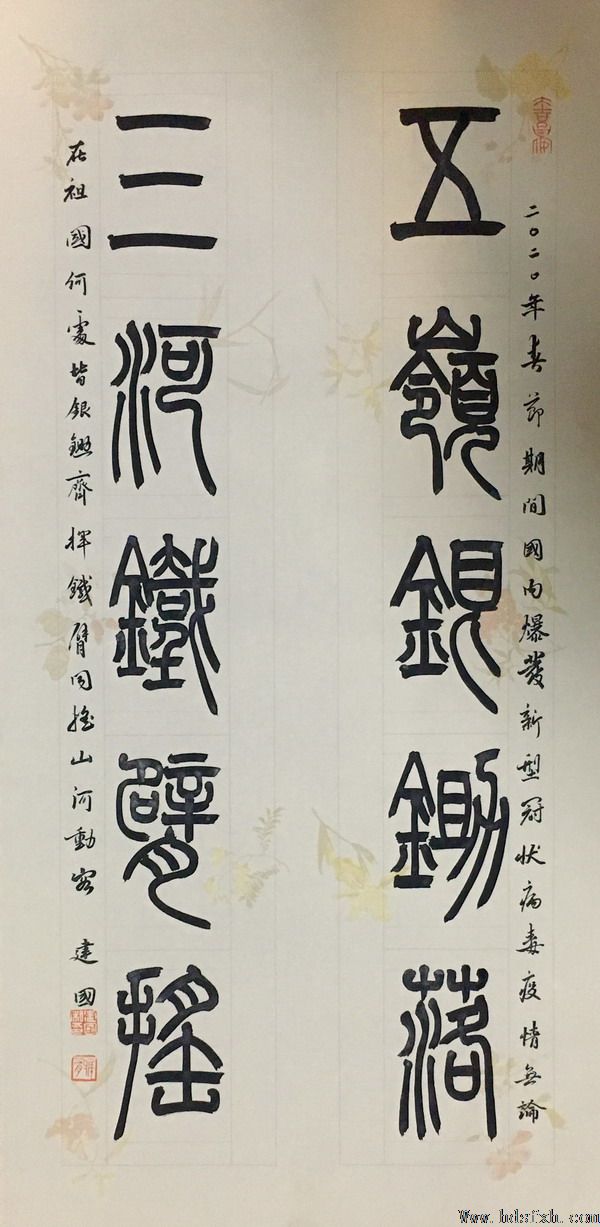 五嶺銀鋤落
三河鐵臂搖
二〇二〇年春節期間國內爆發新型冠狀病毒疫情無論
在祖國何處皆銀鋤齊揮鐵臂同搖山河動容 建國
Www.hdsfxh.com